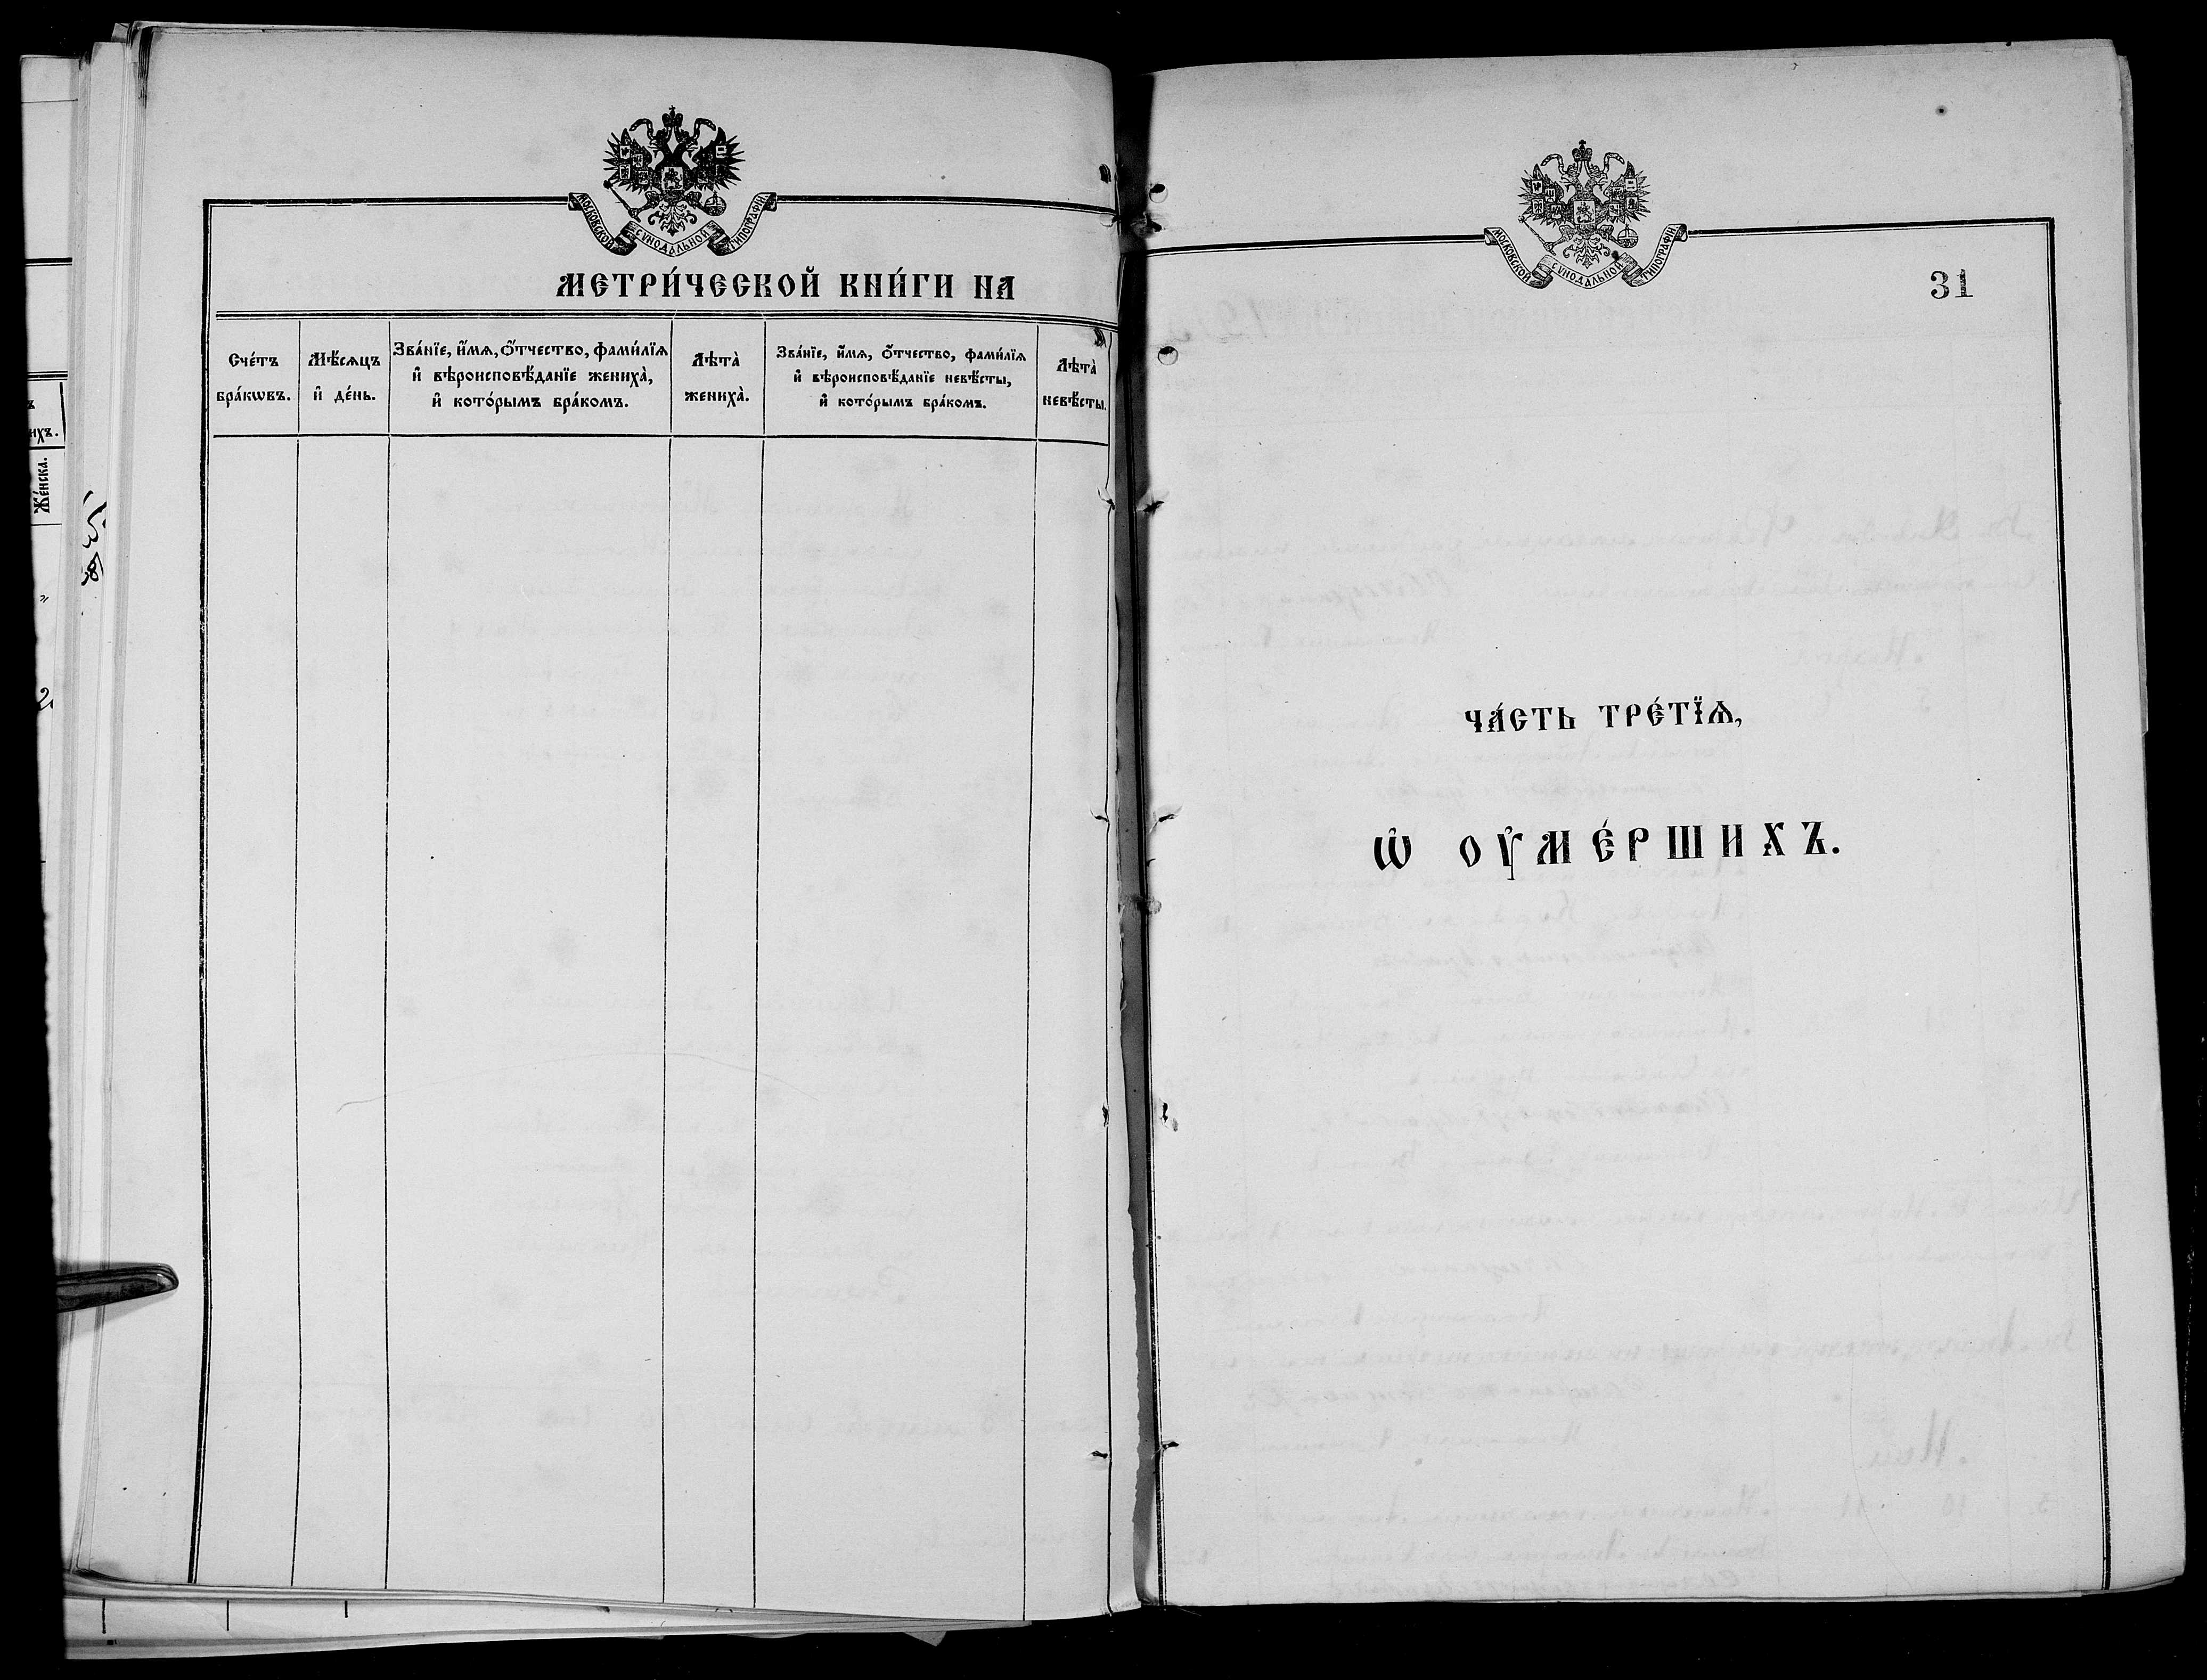 МОСКОВСКОЙ СѴНОДАЛЬНОЙ ТИПОГРАФІИ
МЕТРИ́ЧЕСКОЙ КНИ́ГИ НА
Сче́тъ бра́кѡвъ.
Мѣ́сѧцъ и҆ де́нь.
Зва́нїе, и҆́мѧ, ѻ҆́тчество, фами́лїѧ
и҆ вѣроисповѣ́данїе жениха̀,
и҆ кото́рымъ бра́комъ.
Лѣта̀ жениха̀.
Зва́нїе, и҆́мѧ, ѻ҆́тчество, фами́лїѧ
и҆ вѣроисповѣ́данїе невѣ́сты,
и҆ кото́рымъ бра́комъ.
Лѣта̀ невѣ́сты.
Же́нска.
МОСКОВСКОЙ СѴНОДАЛЬНОЙ ТИПОГРАФІИ
31
ЧА́СТЬ ТРЕ́ТЇѦ,
Ѡ҆ ОУ҆МЕ́РШИХЪ.